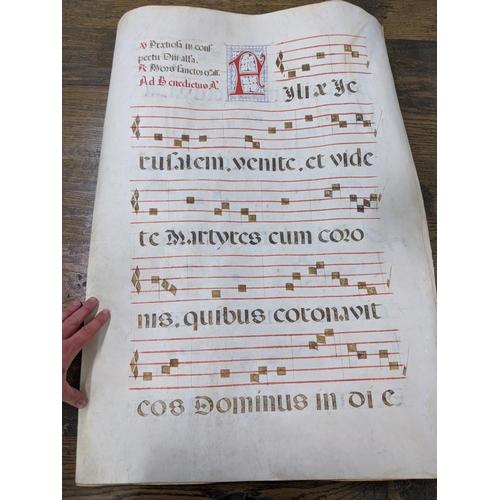 ℣ Pretiosa in cons
pectu Dni alla.
℟ Mors sanctor. all.
Ad Benedictus Aª
Filiæ Ie
rusalem, venite, et vide
te Martyres cum coro
nis, quibus coronavit
eos Dominus in di e